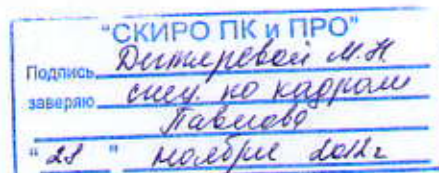 "СКИРО ПК и ПРО"
Подпись Дитяревой М.Н.
заверяю спец. по кадрам
Павлова
"28" ноября 2012г